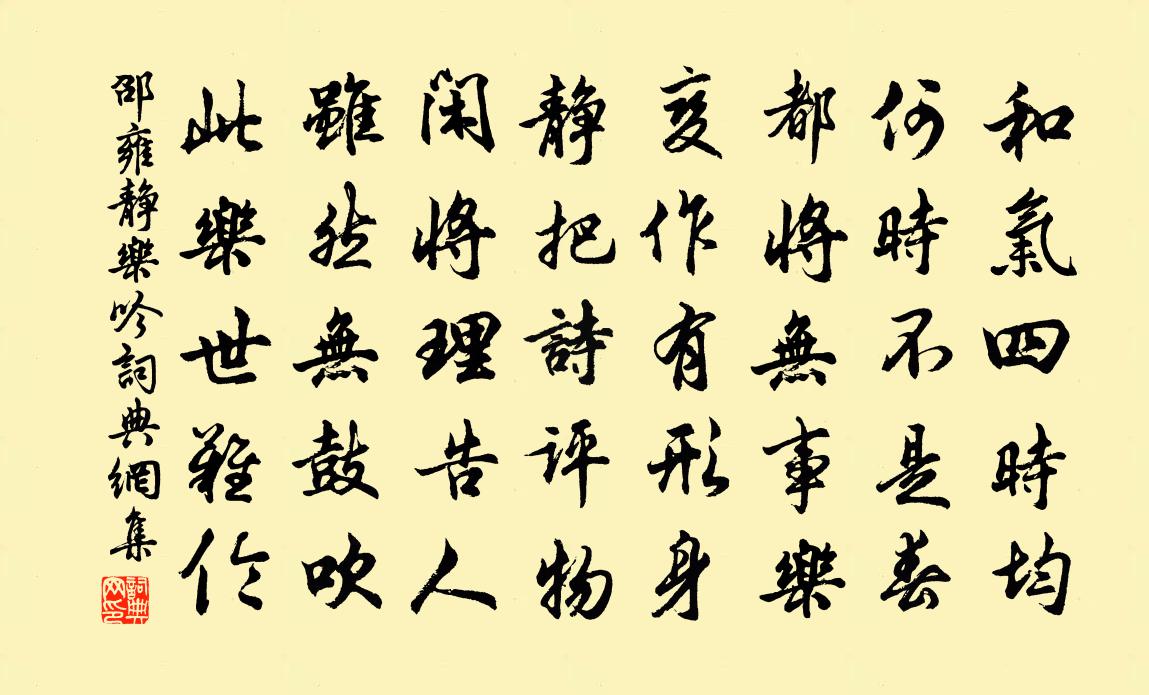 和氣四時均
何時不是春
都將無事樂
变作有形身
静把詩評物
閑將理告人
雖然無鼓吹
此樂世難倫
邵雍静樂吟詞典網集
詞典网印